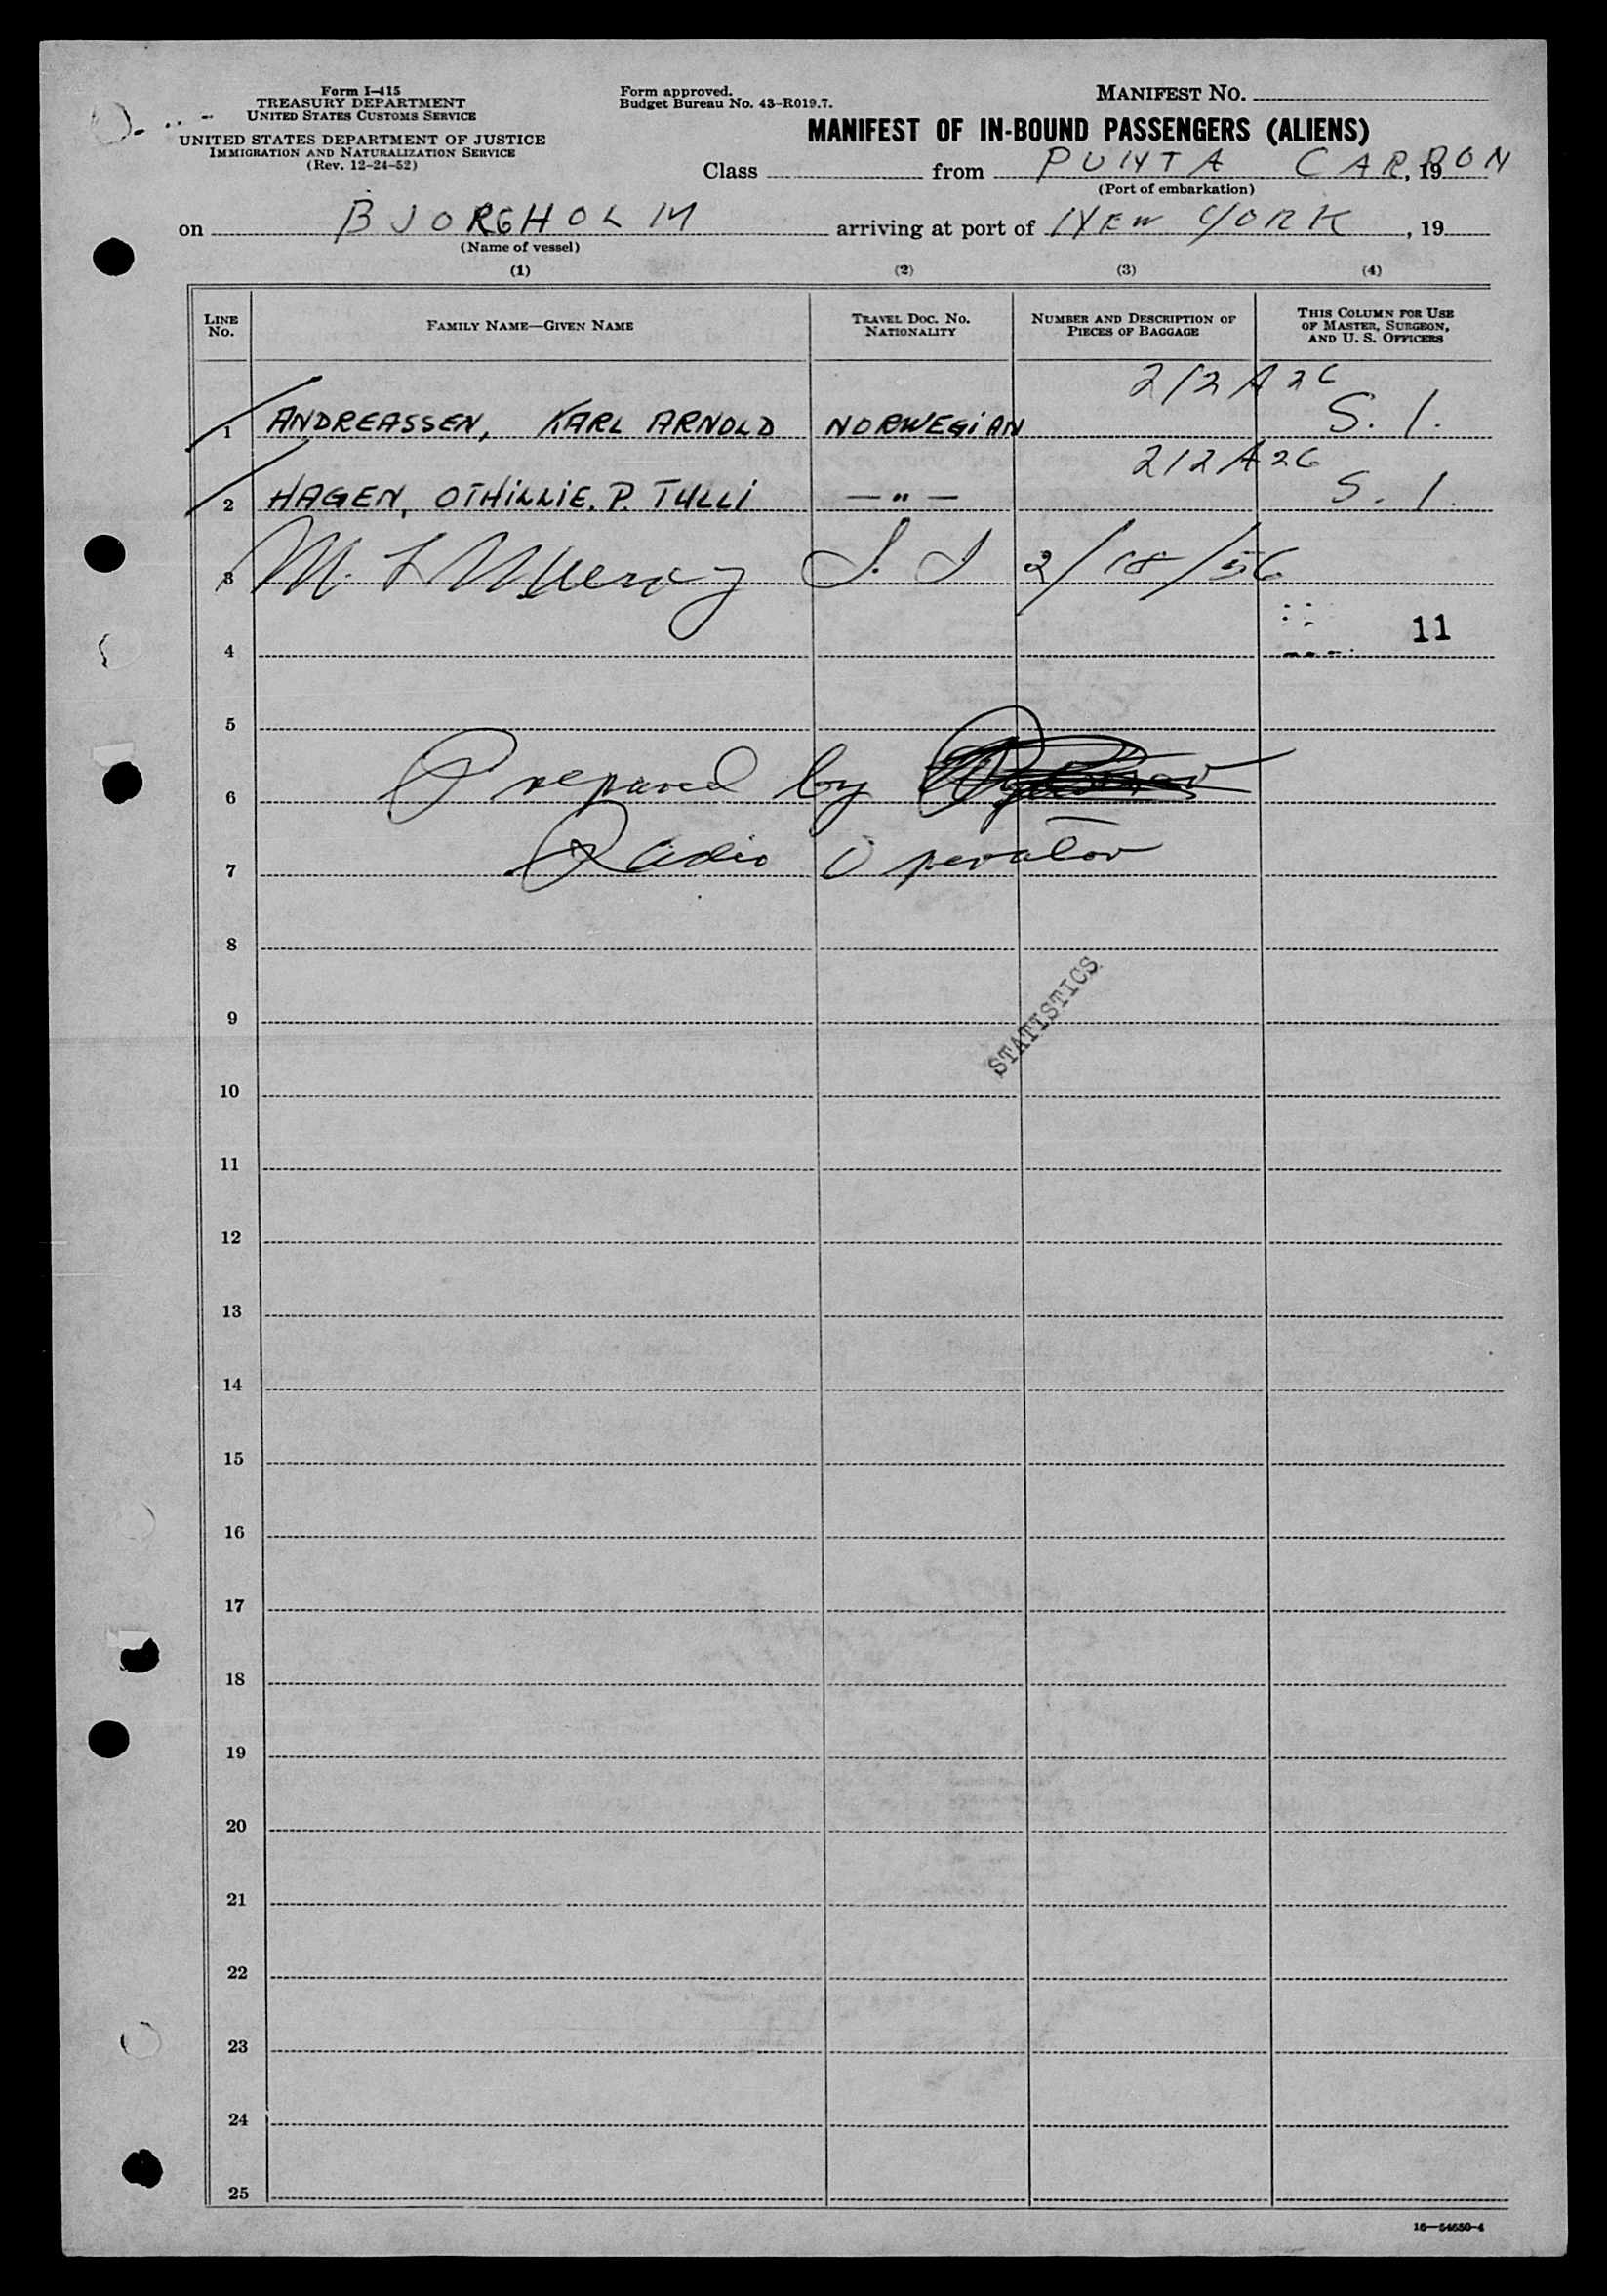 Form I-415
TREASURY DEPARTMENT
UNITED STATES CUSTOMS SERVICE
UNITED STATES DEPARTMENT OF JUSTICE
IMMIGRATION AND NATURALIZATION SERVICE
(Rev. 12-24-52)
Form approved.
Budget Bureau No. 43-R019.7.
MANIFEST NO.
MANIFEST OF IN-BOUND PASSENGERS (ALIENS)
Class from PUNTA CARBON, 19
(Port of embarkation)
on BJORGHOLM arriving at port of NEW YORK, 19
(Name of vessel)
(1) (2) (3) (4)
LINE NO. FAMILY NAME—GIVEN NAME TRAVEL DOC. NO. NATIONALITY NUMBER AND DESCRIPTION OF PIECES OF BAGGAGE THIS COLUMN FOR USE OF MASTER, SURGEON, AND U. S. OFFICERS
212A26
1 ANDREASSEN, KARL ARNOLD NORWEGIAN S. 1.
212A26
2 HAGEN, OTHILLIE. P. TULLI —"— S. 1.
3 M. 2/18/56
11
4
5
6 Prepared by
7 Radio Operator
8
STATISTICS
9
10
11
12
13
14
15
16
17
18
19
20
21
22
23
24
25
16—54650-4